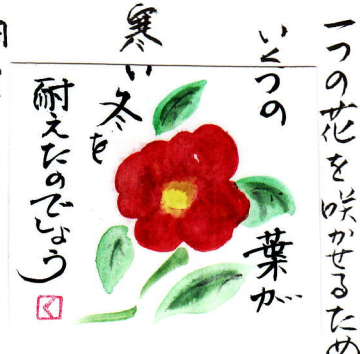 一つの花を咲かせるため
いくつの
葉が
寒い冬を
耐えたのでしょう
く